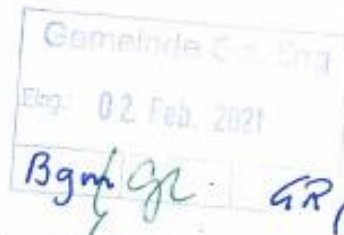 Gemeinde
Eing.: 02. Feb. 2021
Bgm GL. GR